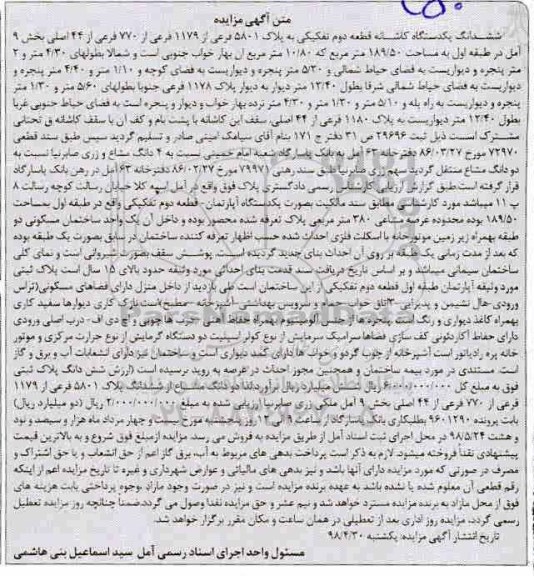 متن آگهی مزایده
ششدانگ یکدستگاه کاشانه قطعه دوم تفکیکی به پلاک ۵۸۰۱ فرعی از ۱۱۷۹ فرعی از ۷۷۰ فرعی از ۴۴ اصلی بخش ۹
آمل در طبقه اول به مساحت ۱۸۹/۵۰ متر مربع که ۱۰/۸۰ متر مربع ان بهار خواب جنوبی است و شمالا بطولهای ۴/۳۰ متر و ۲
متر پنجره و دیواریست به فضای حیاط شمالی و ۵/۳۰ متر پنجره و دیواریست به فضای کوچه و ۱/۱۰ متر و ۴/۴۰ متر پنجره و
دیواریست به فضای حیاط شمالی شرقا بطول ۱۳/۴۰ متر دیوار به دیوار پلاک ۱۱۷۸ فرعی جنوبا بطولهای ۵/۶۰ متر و ۱/۳۰ متر
پنجره و دیواریست به راه پله و ۵/۱۰ متر و ۱/۳۰ متر و ۴/۳۰ متر نرده بهار خواب و دیوار و پنجره است به فضای حیاط جنوبی غربا
بطول ۱۲/۴۰ متر دیواریست به پلاک ۱۱۸۰ فرعی از ۴۴ اصلی. سقف این کاشانه با پشت بام و کف آن با سقف کاشانه ق تحتانی
مشترک است ذیل ثبت ۲۹۶۹۶ ص ۳۱ دفتر ج ۱۷۱ بنام آقای سیامک امینی صادر و تسلیم گردید سپس طبق سند قطعی
۷۲۹۷۰ مورخ ۸۶/۰۳/۲۷ دفترخانه ۶۳ آمل به بانک پاسارگاد شعبه امام خمینی نسبت به ۴ دانگ مشاع و زری صابرنیا نسبت به
دو دانگ مشاع منتقل گردید سهم زری صابرنیا طبق سند رهنی (۷۹۹۷۱ مورخ ۸۶/۰۳/۲۷ دفترخانه ۶۳ آمل در رهن بانک پاسارگاد
قرار گرفته است طبق گزارش ارزیابی کارشناس رسمی دادگستری پلاک فوق واقع در آمل اسپه کلا خیابان رسالت کوچه رسالت ۸
پ ۱۱ میباشد مورد کارشناسی مطابق سند مالکیت بصورت یکدستگاه آپارتمان- قطعه دوم تفکیکی واقع در طبقه اول بمساحت
۱۸۹/۵۰ بوده محدوده عرصه مشاعی ۳۸۰ متر مربعی پلاک تعرفه شده محصور بوده و داخل آن یک واحد ساختمان مسکونی دو
طبقه بهمراه زیر زمین موتورخانه با اسکلت فلزی احداث شده حسب اظهار تعرفه کننده ساختمان در سابق بصورت یک طبقه بوده
که بعد از مدت زمانی یک طبقه بر روی آن احداث بنای جدید گردیده است. پوشش سقف بصورت شیروانی است و نمای کلی
ساختمان سیمانی میباشد و بر اساس تاریخ دریافت سند قدمت بنای احداثی مورد وثیقه حدود بالای ۱۵ سال است پلاک ثبتی
مورد وثیقه آپارتمان طبقه اول قطعه دوم تفکیکی از این ساختمان است طی بازدید از داخل منزل دارای فضاهای مسکونی(تراس
ورودی هال نشیمن و پذیرایی ۳ اتاق خواب حمام و سرویس بهداشتی-آشپزخانه ...) مطبخ است نازک کاری دیوارها سفید کاری
بهمراه کاغذ دیواری و رنگ است. پنجره ها از جنس آلومینیوم بهمراه حفاظ آهنی درب ها چوبی و اچ دی اف- درب اصلی ورودی
دارای حفاظ آکاردئونی کف سازی فضاها سرامیک سرمایش از نوع کولر اسپلیت دو دستگاه گرمایش از نوع حرارت مرکزی و موتور
خانه پره رادیاتور است آشپزخانه از چوب گردو و خواب ها دارای کمد دیواری است و ساختمان نیز دارای انشعابات آب و برق و گاز
است. مستندی در مورد بیمه ساختمان و همچنین مجوز احداث در عرصه به روید نرسیده است (ارزش شش دانگ پلاک ثبتی
فوق به مبلغ کل ۶/۰۰۰/۰۰۰/۰۰۰ ریال (شش میلیارد ریال) برآورد لذا دو دانگ مشاع از ششدانگ پلاک ۵۸۰۱ فرعی از ۱۱۷۹
فرعی از ۷۷۰ فرعی از ۴۴ اصلی بخش ۹ آمل ملکی زری صابرنیا ارزیابی شده به مبلغ ۲/۰۰۰/۰۰۰/۰۰۰ ریال (دو میلیارد ریال)
بابت پرونده ۹۶۰۱۲۹۰ بطلبکاری بانک پاسارگاد از ساعت ۹ الی ۱۲ روز پنجشنبه مورخ بیست و چهار مرداد ماه هزار و سیصد و نود
و هشت ۹۸/۵/۲۴ در محل اجرای ثبت اسناد آمل از طریق مزایده به فروش می رسد. مزایده از مبلغ فوق شروع و به بالاترین قیمت
پیشنهادی نقدا فروخته میشود. لازم به ذکر است پرداخت بدهی های مربوط به آب، برق گاز اعم از حق انشعاب و یا حق اشتراک و
مصرف در صورتی که مورد مزایده دارای آنها باشد و نیز بدهی های مالیاتی و عوارض شهرداری و غیره تا تاریخ مزایده اعم از اینکه
رقم قطعی آن معلوم شده یا نشده باشد به عهده برنده مزایده است و نیز در صورت وجود مازاد ،وجوه پرداختی بابت هزینه های
فوق از محل مازاد به برنده مزایده مسترد خواهد شد و نیم عشر و حق مزایده نقدا وصول می گردد.ضمنا چنانچه روز مزایده تعطیل
رسمی گردد، مزایده روز اداری بعد از تعطیلی در همان ساعت و مکان مقرر برگزار خواهد شد.
تاریخ انتشار آگهی مزایده: یکشنبه ۹۸/۴/۳۰
مسئولِ واحد اجرای اسناد رسمی آمل سید اسماعیل بنی هاشمی